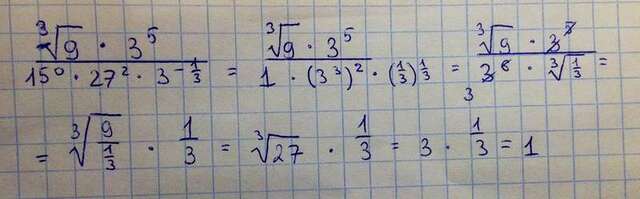 ∛9 · 3⁵ / 15⁰ · 27² · 3^(-1/3) = ∛9 · 3⁵ / 1 · (3³)² · (1/3)^(1/3) = ∛9 · 3⁵ / 3⁶ · ∛(1/3) =
3
= ∛(9 / (1/3)) · 1/3 = ∛27 · 1/3 = 3 · 1/3 = 1